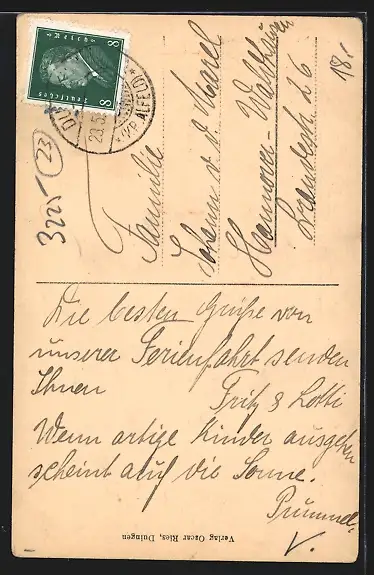 8 8
Deutsches Reich
23.5
ALFELD
18.-
3225
23
Familie
Johann v. d. Marel
Hannover-Waldhausen
26
Die besten Grüße von
unserer Ferienfahrt senden
Ihnen Fritz & Lotti
Wenn artige Kinder ausgehen
scheint auf die Sonne.
Verlag Oscar Ries, Duingen